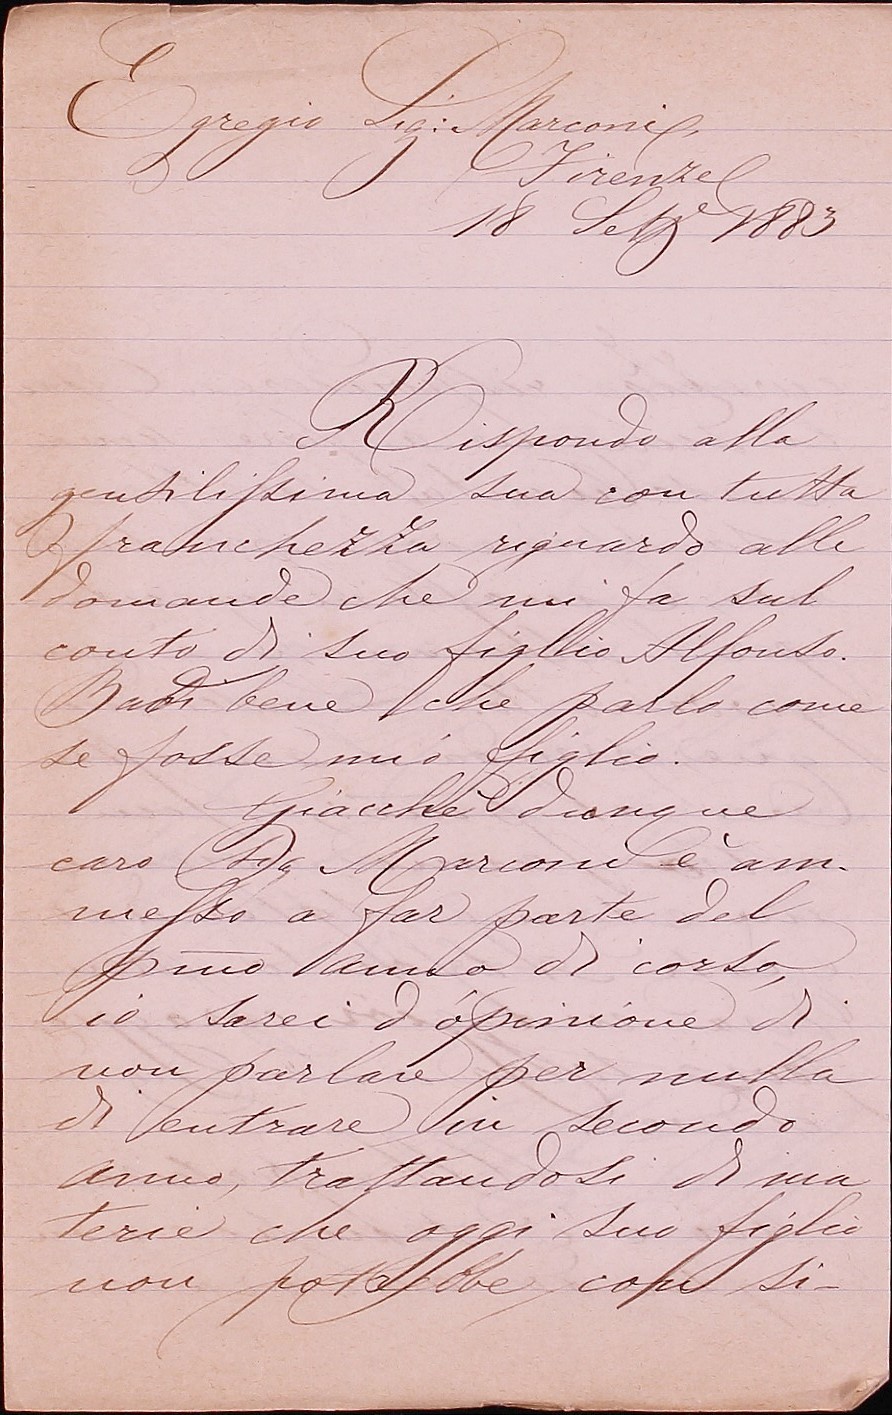 Egregio Sig: Marconi,
Firenze
18 Sett.e 1883
Rispondo alla
gentilissima sua con tutta
franchezza riguardo alle
domande che mi fa sul
conto di suo figlio Alfonso.
Badi bene che parlo come
se fosse mio figlio.
Giacchè dunque
caro Sig Marconi è am-
messo a far parte del
pmo anno di corso,
io sarei d'opinione di
non parlare per nulla
di entrare in secondo
anno, trattandosi di ma
terie che oggi suo figlio
non potrebbe con si-